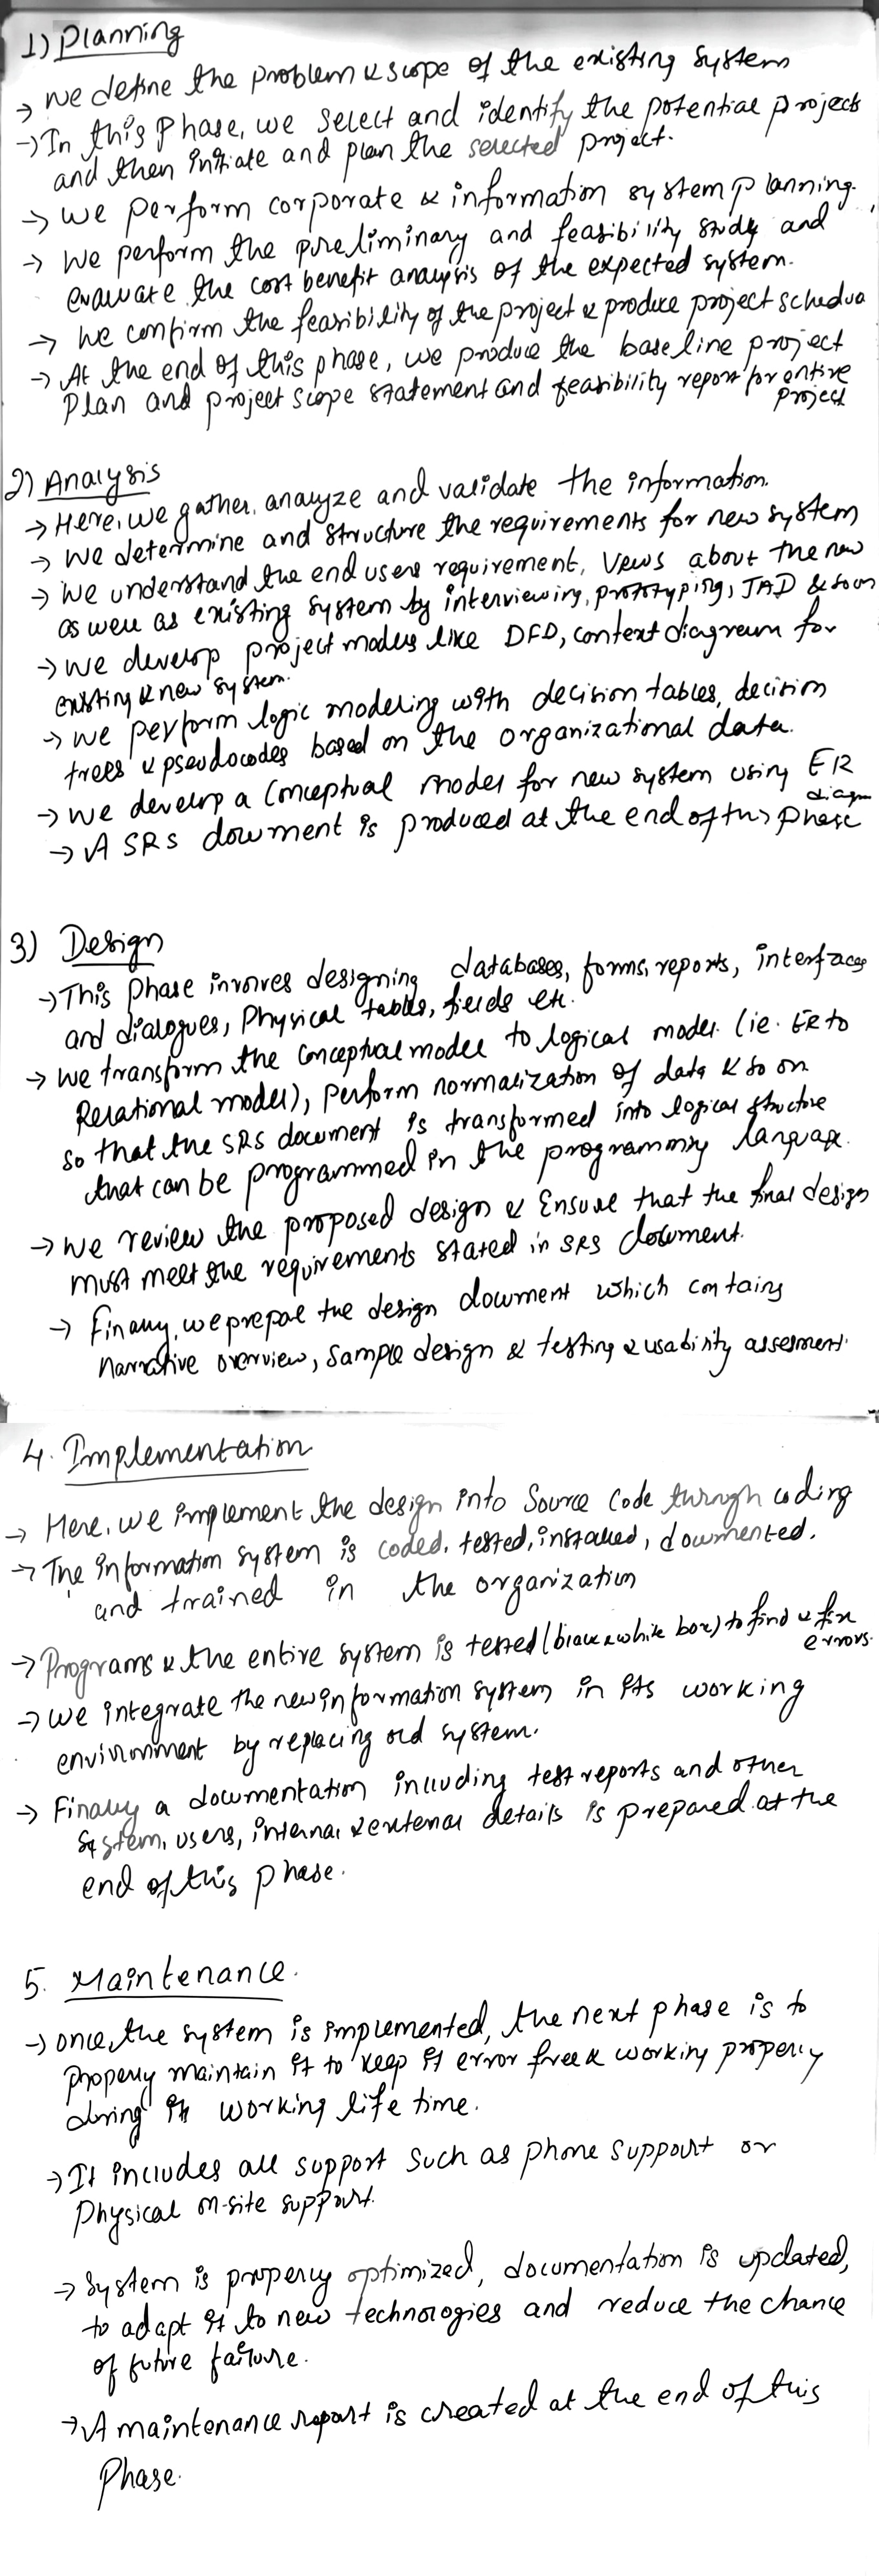 1) Planning
→ we define the problem & scope of the existing system
→ In this phase, we select and identify the potential project
and then initiate and plan the selected project.
→ we perform corporate & information system planning.
→ We perform the preliminary and feasibility study and
evaluate the cost benefit analysis of the expected system.
→ We confirm the feasibility of the project & produce project schedu
→ At the end of this phase, we produce the baseline project
Plan and project scope statement and feasibility report for entire
project
2) Analysis
→ Here, we gather, analyze and validate the information.
→ We determine and structure the requirements for new system
→ We understand the end users requirement, views about the new
as well as existing system by interviewing, prototyping, JAD & so on
→ we develop project models like DFD, context diagram for
existing & new system.
→ we perform logic modeling with decision tables, decision
trees & pseudocodes based on the organizational data.
→ we develop a conceptual model for new system using ER
diagm
→ A SRS document is produced at the end of this phase
3) Design
→ This phase involves designing databases, forms, reports, interfaces
and dialogues, Physical tables, fields etc.
→ we transform the conceptual model to logical model (ie. ER to
Relational model), perform normalization of data & so on
so that the SRS document is transformed into logical structure
that can be programmed in the programming language.
→ we review the proposed design & Ensure that the final design
must meet the requirements stated in SRS document.
→ Finally, we prepar the design document which contains
Narrative overview, Sample design & testing & usability assesment.
4. Implementation
→ Here, we implement the design into Source code through coding
→ The information system is coded, tested, installed, documented.
and trained in the organization
→ Programs & the entire system is tested (black & white box) to find & fix
errors.
→ we integrate the new information system in its working
environment by replacing old system.
→ Finally a documentation including test reports and other
system, users, internal & external details is prepared at the
end of this phase.
5. Maintenance.
→ once, the system is implemented, the next phase is to
properly maintain it to keep it error free & working properly
during its working life time.
→ It includes all support such as phone support or
Physical on-site support.
→ System is properly optimized, documentation is updated,
to adapt it to new technologies and reduce the chance
of future failure.
→ A maintenance report is created at the end of this
Phase.